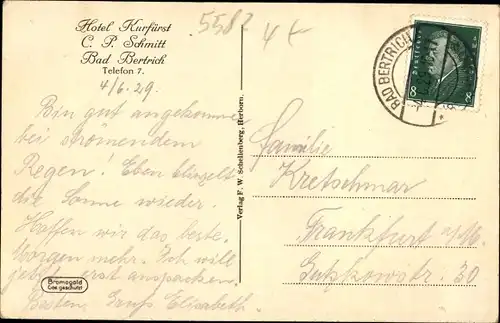 Hotel Kurfürst
C. P. Schmitt
Bad Bertrich
Telefon 7.
5582
4/6.29.
Bin gut angekommen
bei strömendem
Regen! Eben
die Sonne wieder.
Hoffen wir das beste.
Morgen mehr. Ich will
jetzt erst auspacken.
Besten Gruß Elisabeth.
Bromogold
Ges. geschützt
Verlag F. W. Schellenberg, Herborn.
BAD BERTRICH
DEUTSCHES REICH
8 8
Familie
Kretschmar
Frankfurt a/M.
Gutzkowstr. 30